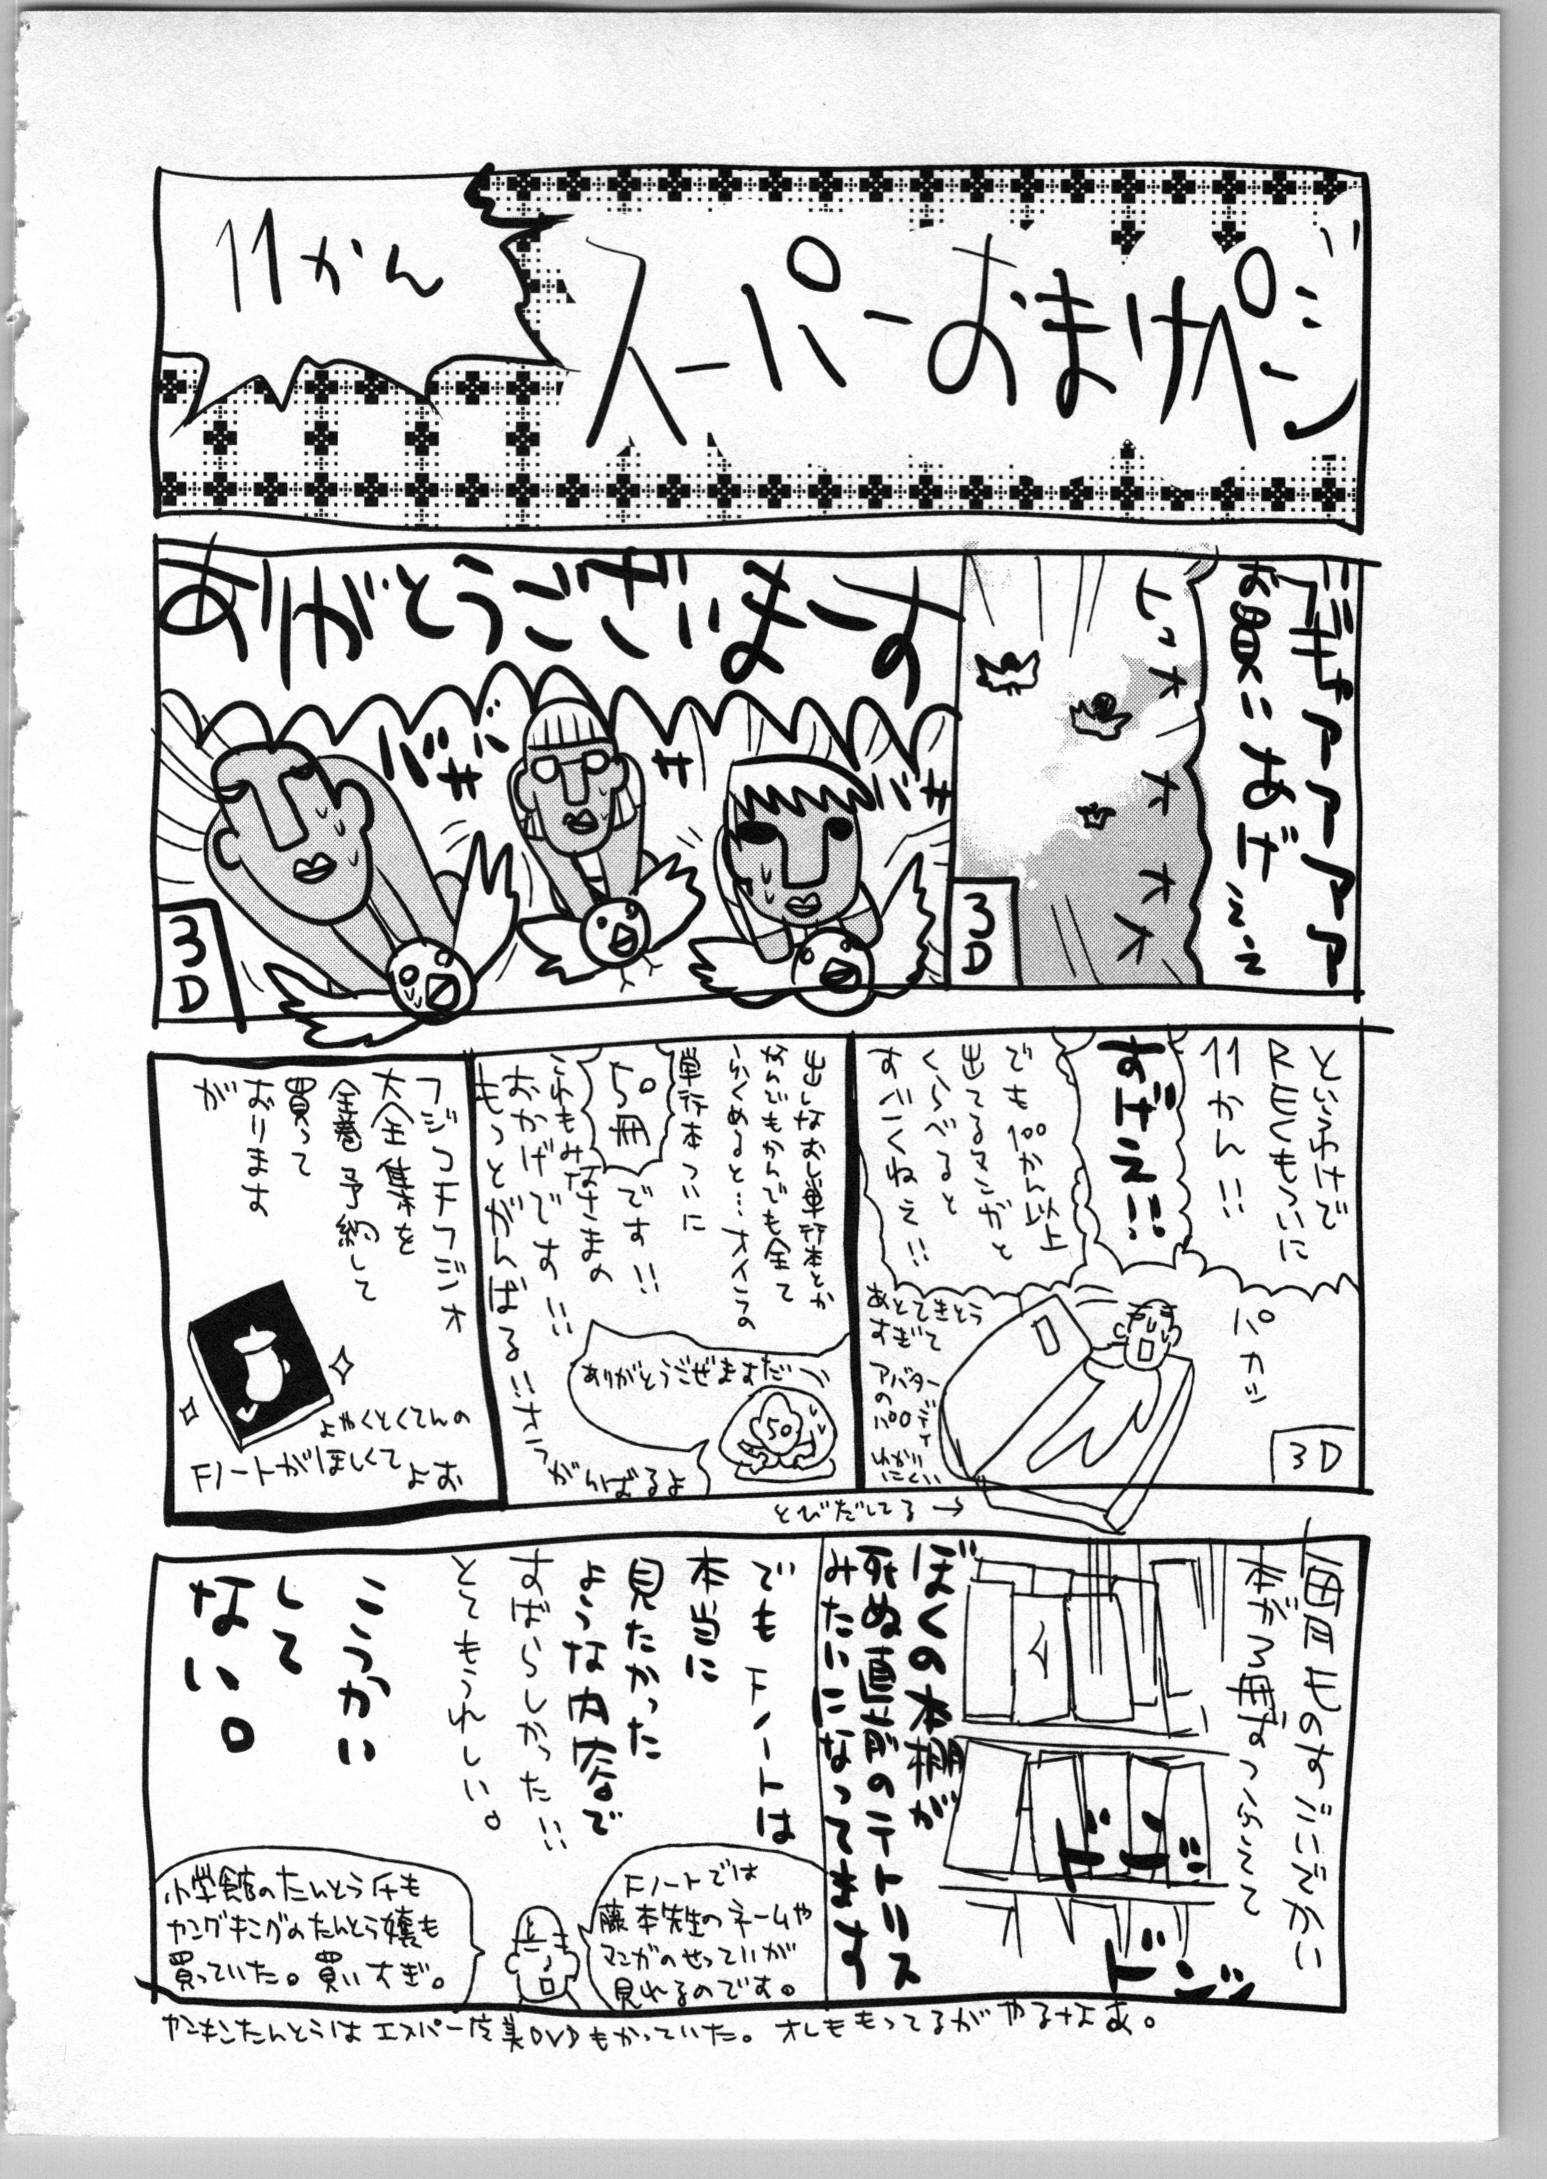 11かん
スーパーおまけページ
ギャアアアアアア
お買いあげ
ドオオオオオ
3D
ありがとうございまーす
バサ
バサ
バサ
3D
というわけで
RECもついに
11かん!!
すげえ!!
でも100かん以上
出てるマンガと
くらべると
すごくねぇ!!
パカッ
3D
あとてきとう
すぎて
アバター
の
パロディ
わかり
にくい
とびだしてる→
出しなおし単行本とか
ならびもかんでも全て
ふくめると…大イシの
単行本ついに
50冊
です!!
これもみなさまの
おかげです!!
もっとがんばる!!
さらがんばるよ
ありがとうごぜますだー
50
フジコFフジオ
大全集を
全巻予約して
買って
おります
が
よやくとくてんの
Fノートがほしくてよお
毎月ものすごいぶあつい
本が3冊ずつふえて
ドン
ドンッ
ぼくの本棚が
死ぬ直前のテトリス
みたいになってます
でもFノートは
本当に
見たかった
ような内容で
すばらしかった!!
とてもうれしい。
こうかい
して
ない。
Fノートでは
藤本先生のネームや
マンガのせっていが
見れるのです。
小学館のたんとう氏も
ヤングキングのたんとう嬢も
買っていた。買いすぎ。
ヤンキンたんとうはエスパー魔美DVDもかっていた。オレももってるがやるなよあ。